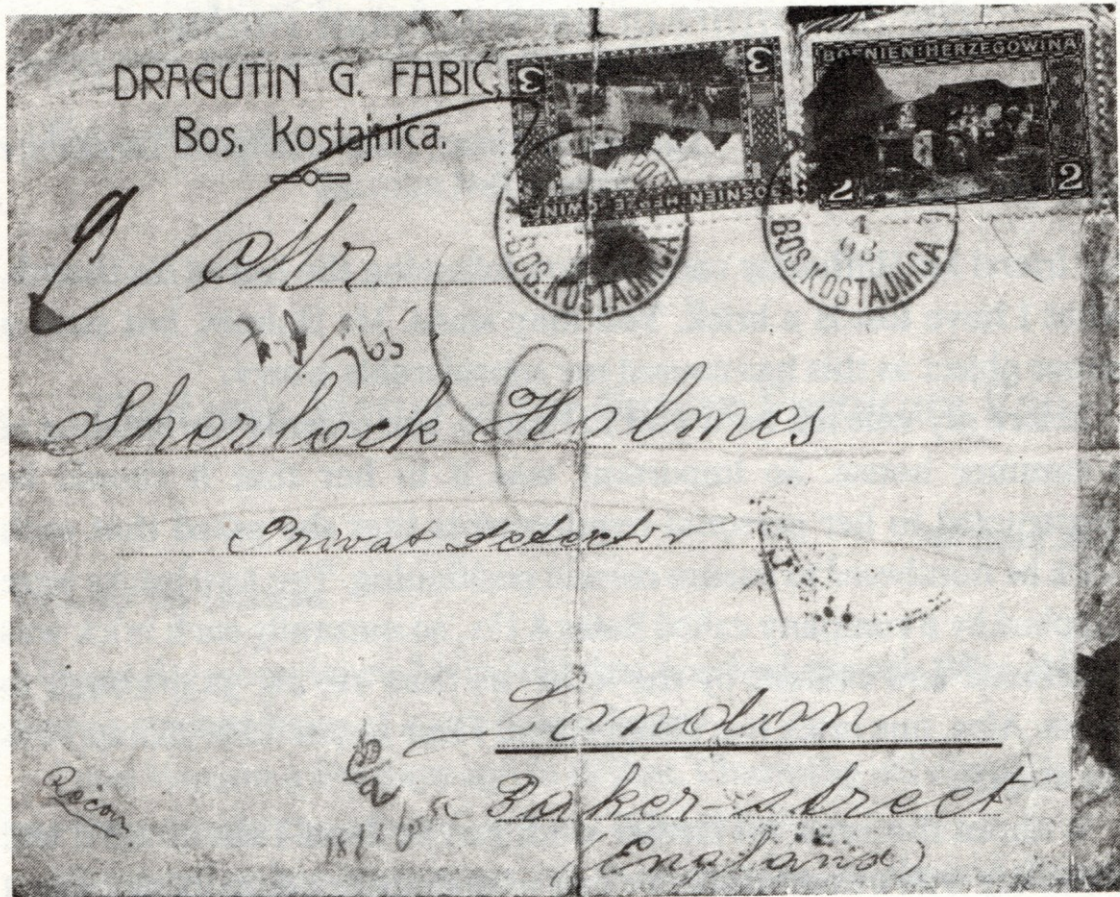 DRAGUTIN G. FABIĆ
Bos. Kostajnica.
3 3
BOSNIEN-HERZEGOWINA
2 2
BOS. KOSTAJNICA
BOS. KOSTAJNICA
1
08
Mr.
Sherlock Holmes
Privat detectiv
London
Baker-street
(England)